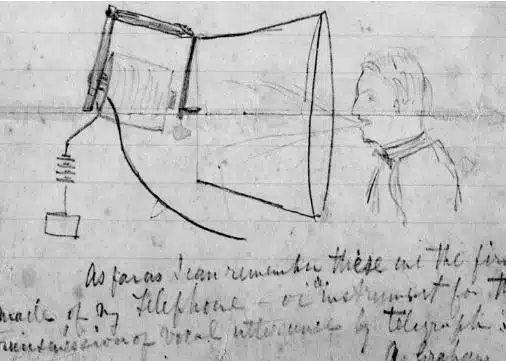 As far as I can remember these are the firs
made of my telephone - or "instrument for th
transmission of vocal utterance by telegraph
A. Graham